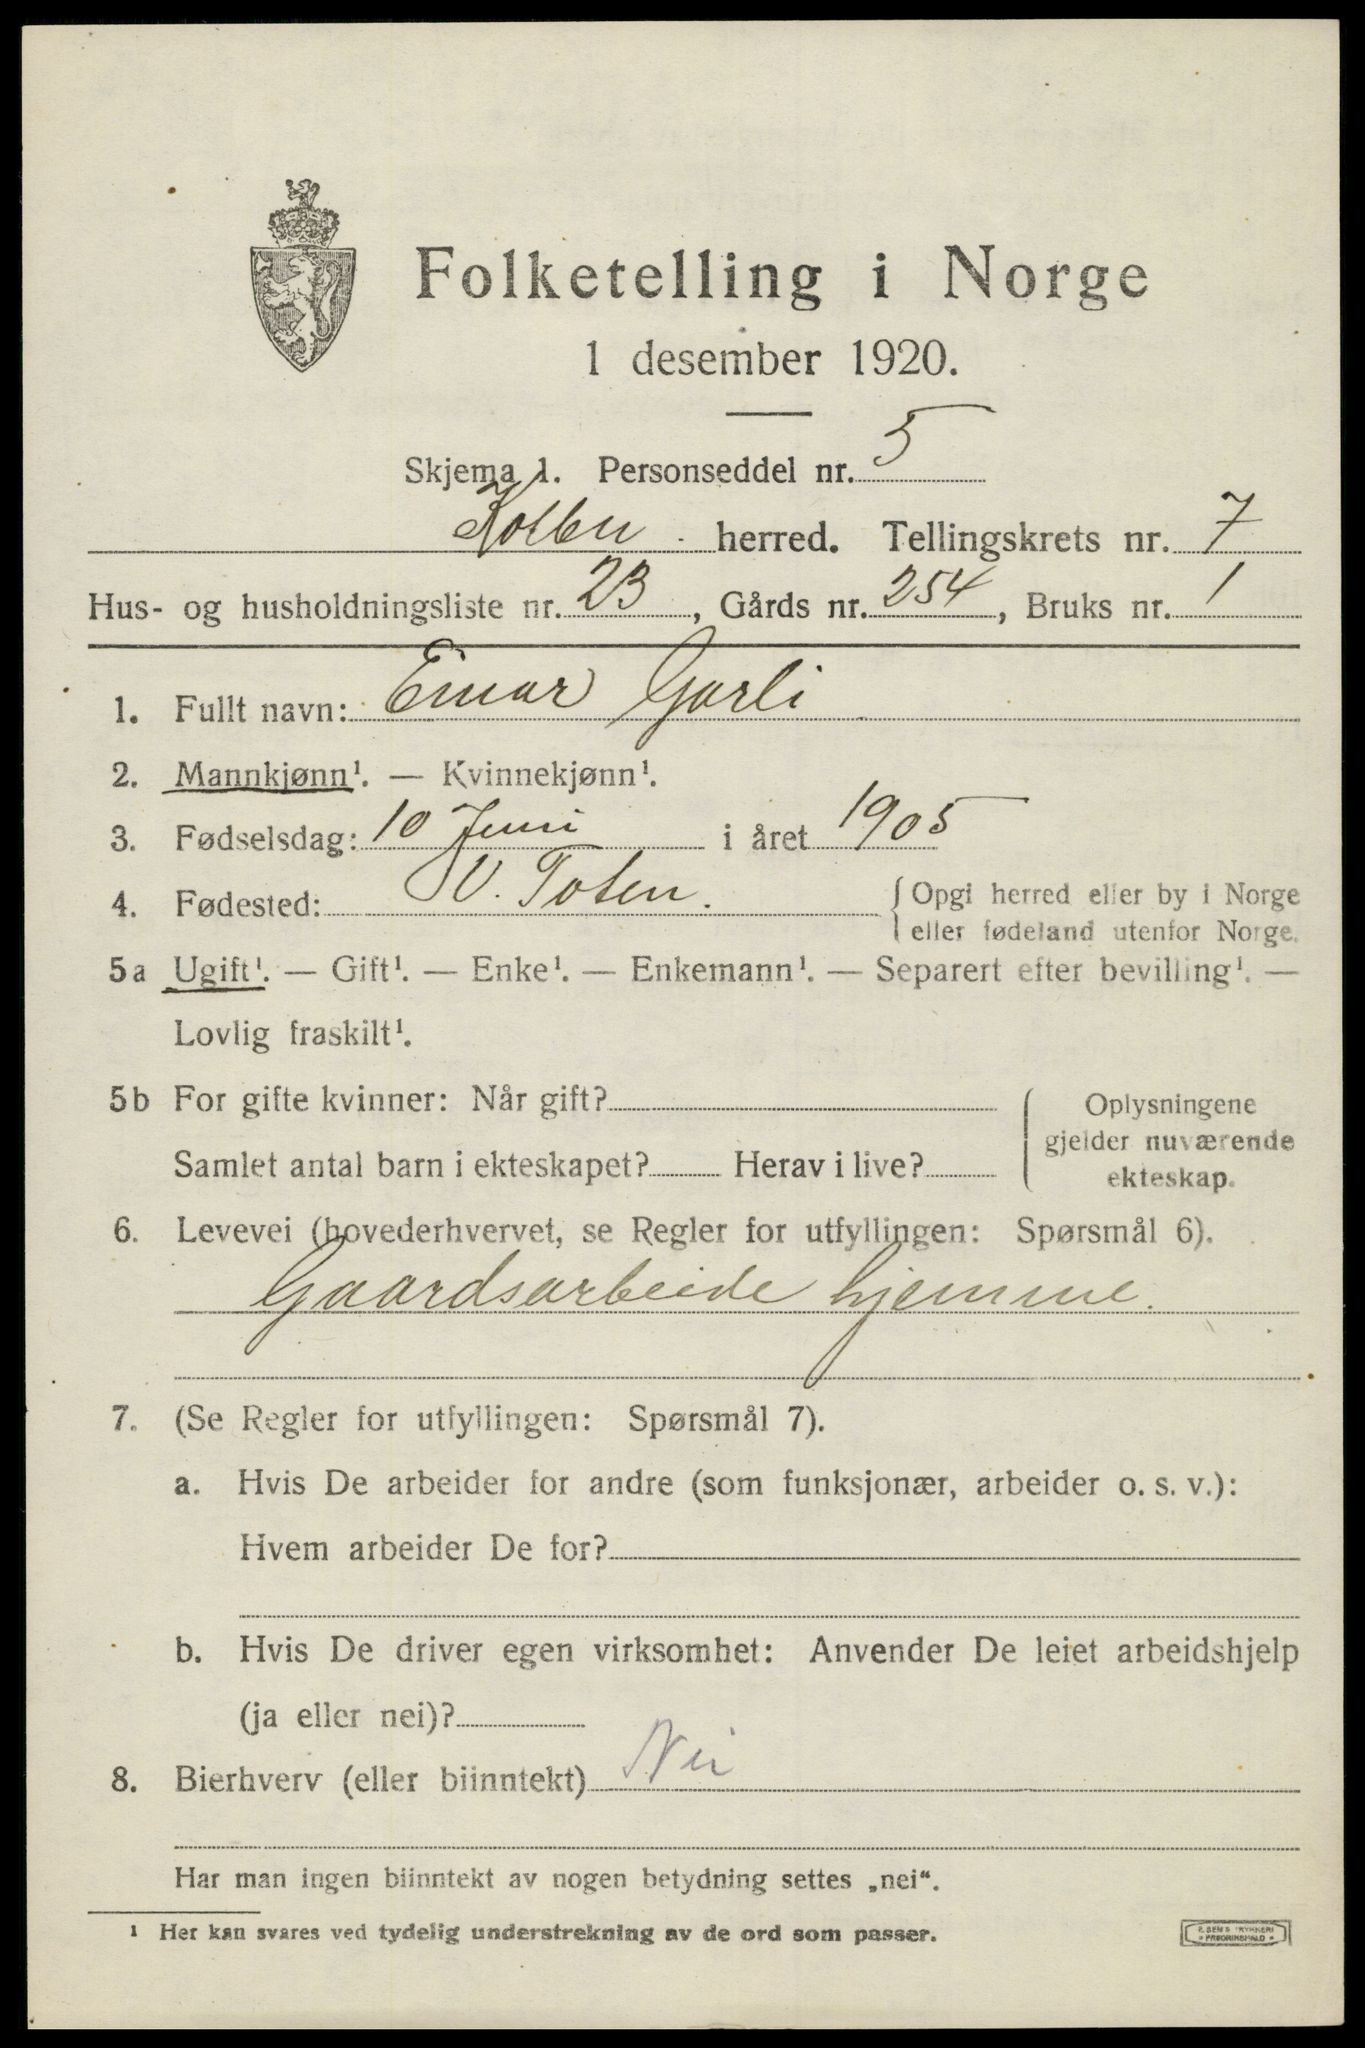 Folketelling i Norge
1 desember 1920.
Skjema 1. Personseddel nr. 5
Kolbu herred. Tellingskrets nr. 7
Hus- og husholdningsliste nr. 23, Gårds nr. 254, Bruks nr. 1
1. Fullt navn: Einar Garli
2. Mannkjønn¹. — Kvinnekjønn¹.
3. Fødselsdag: 10 Juni i året 1905
4. Fødested: V. Toten. Opgi herred eller by i Norge
eller fødeland utenfor Norge.
5a Ugift¹. — Gift¹. — Enke¹. — Enkemann¹. — Separert efter bevilling¹. —
Lovlig fraskilt¹.
5b For gifte kvinner: Når gift? Oplysningene
gjelder nuværende
Samlet antal barn i ekteskapet? Herav i live? ekteskap.
6. Levevei (hovederhvervet, se Regler for utfyllingen: Spørsmål 6).
Gaardsarbeide hjemme.
7. (Se Regler for utfyllingen: Spørsmål 7).
a. Hvis De arbeider for andre (som funksjonær, arbeider o. s. v.):
Hvem arbeider De for?
b. Hvis De driver egen virksomhet: Anvender De leiet arbeidshjelp
(ja eller nei)?
8. Bierhverv (eller biinntekt) Nei
Har man ingen biinntekt av nogen betydning settes „nei“.
¹ Her kan svares ved tydelig understrekning av de ord som passer.